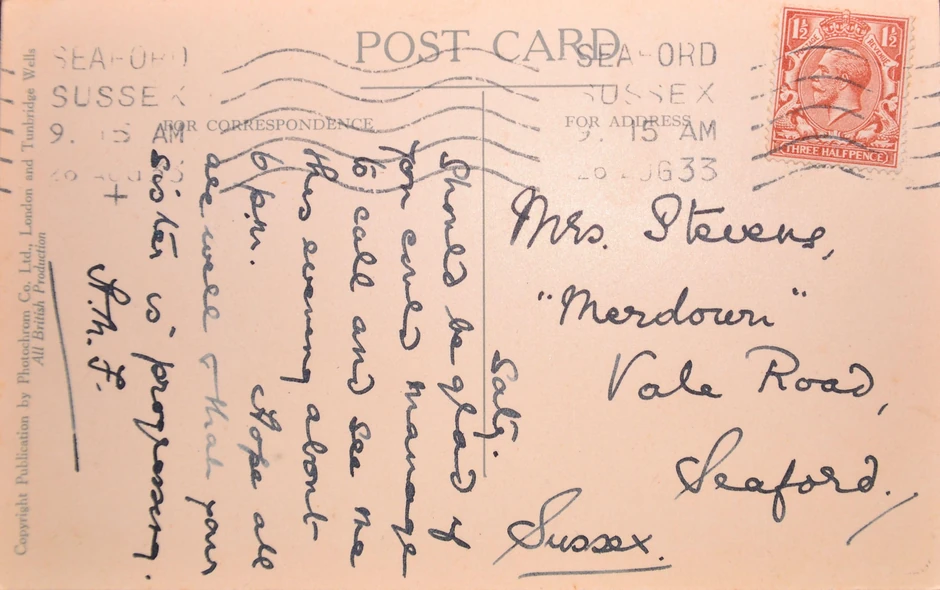 POST CARD
FOR CORRESPONDENCE
FOR ADDRESS
SEAFORD
SUSSEX
9. 15 AM
26 AUG 33
SEAFORD
SUSSEX
9. 15 AM
26 AUG 33
1½ 1½
THREE HALFPENCE
Saty.
Should be glad if
you could manage
to call and see me
this evening about
6 p.m. Hope all
are well & that your
sister is progressing.
A.M.F.
Mrs. Stevens,
"Merdown"
Vale Road,
Seaford.
Sussex.
Copyright Publication by Photochrom Co. Ltd., London and Tunbridge Wells
All British Production